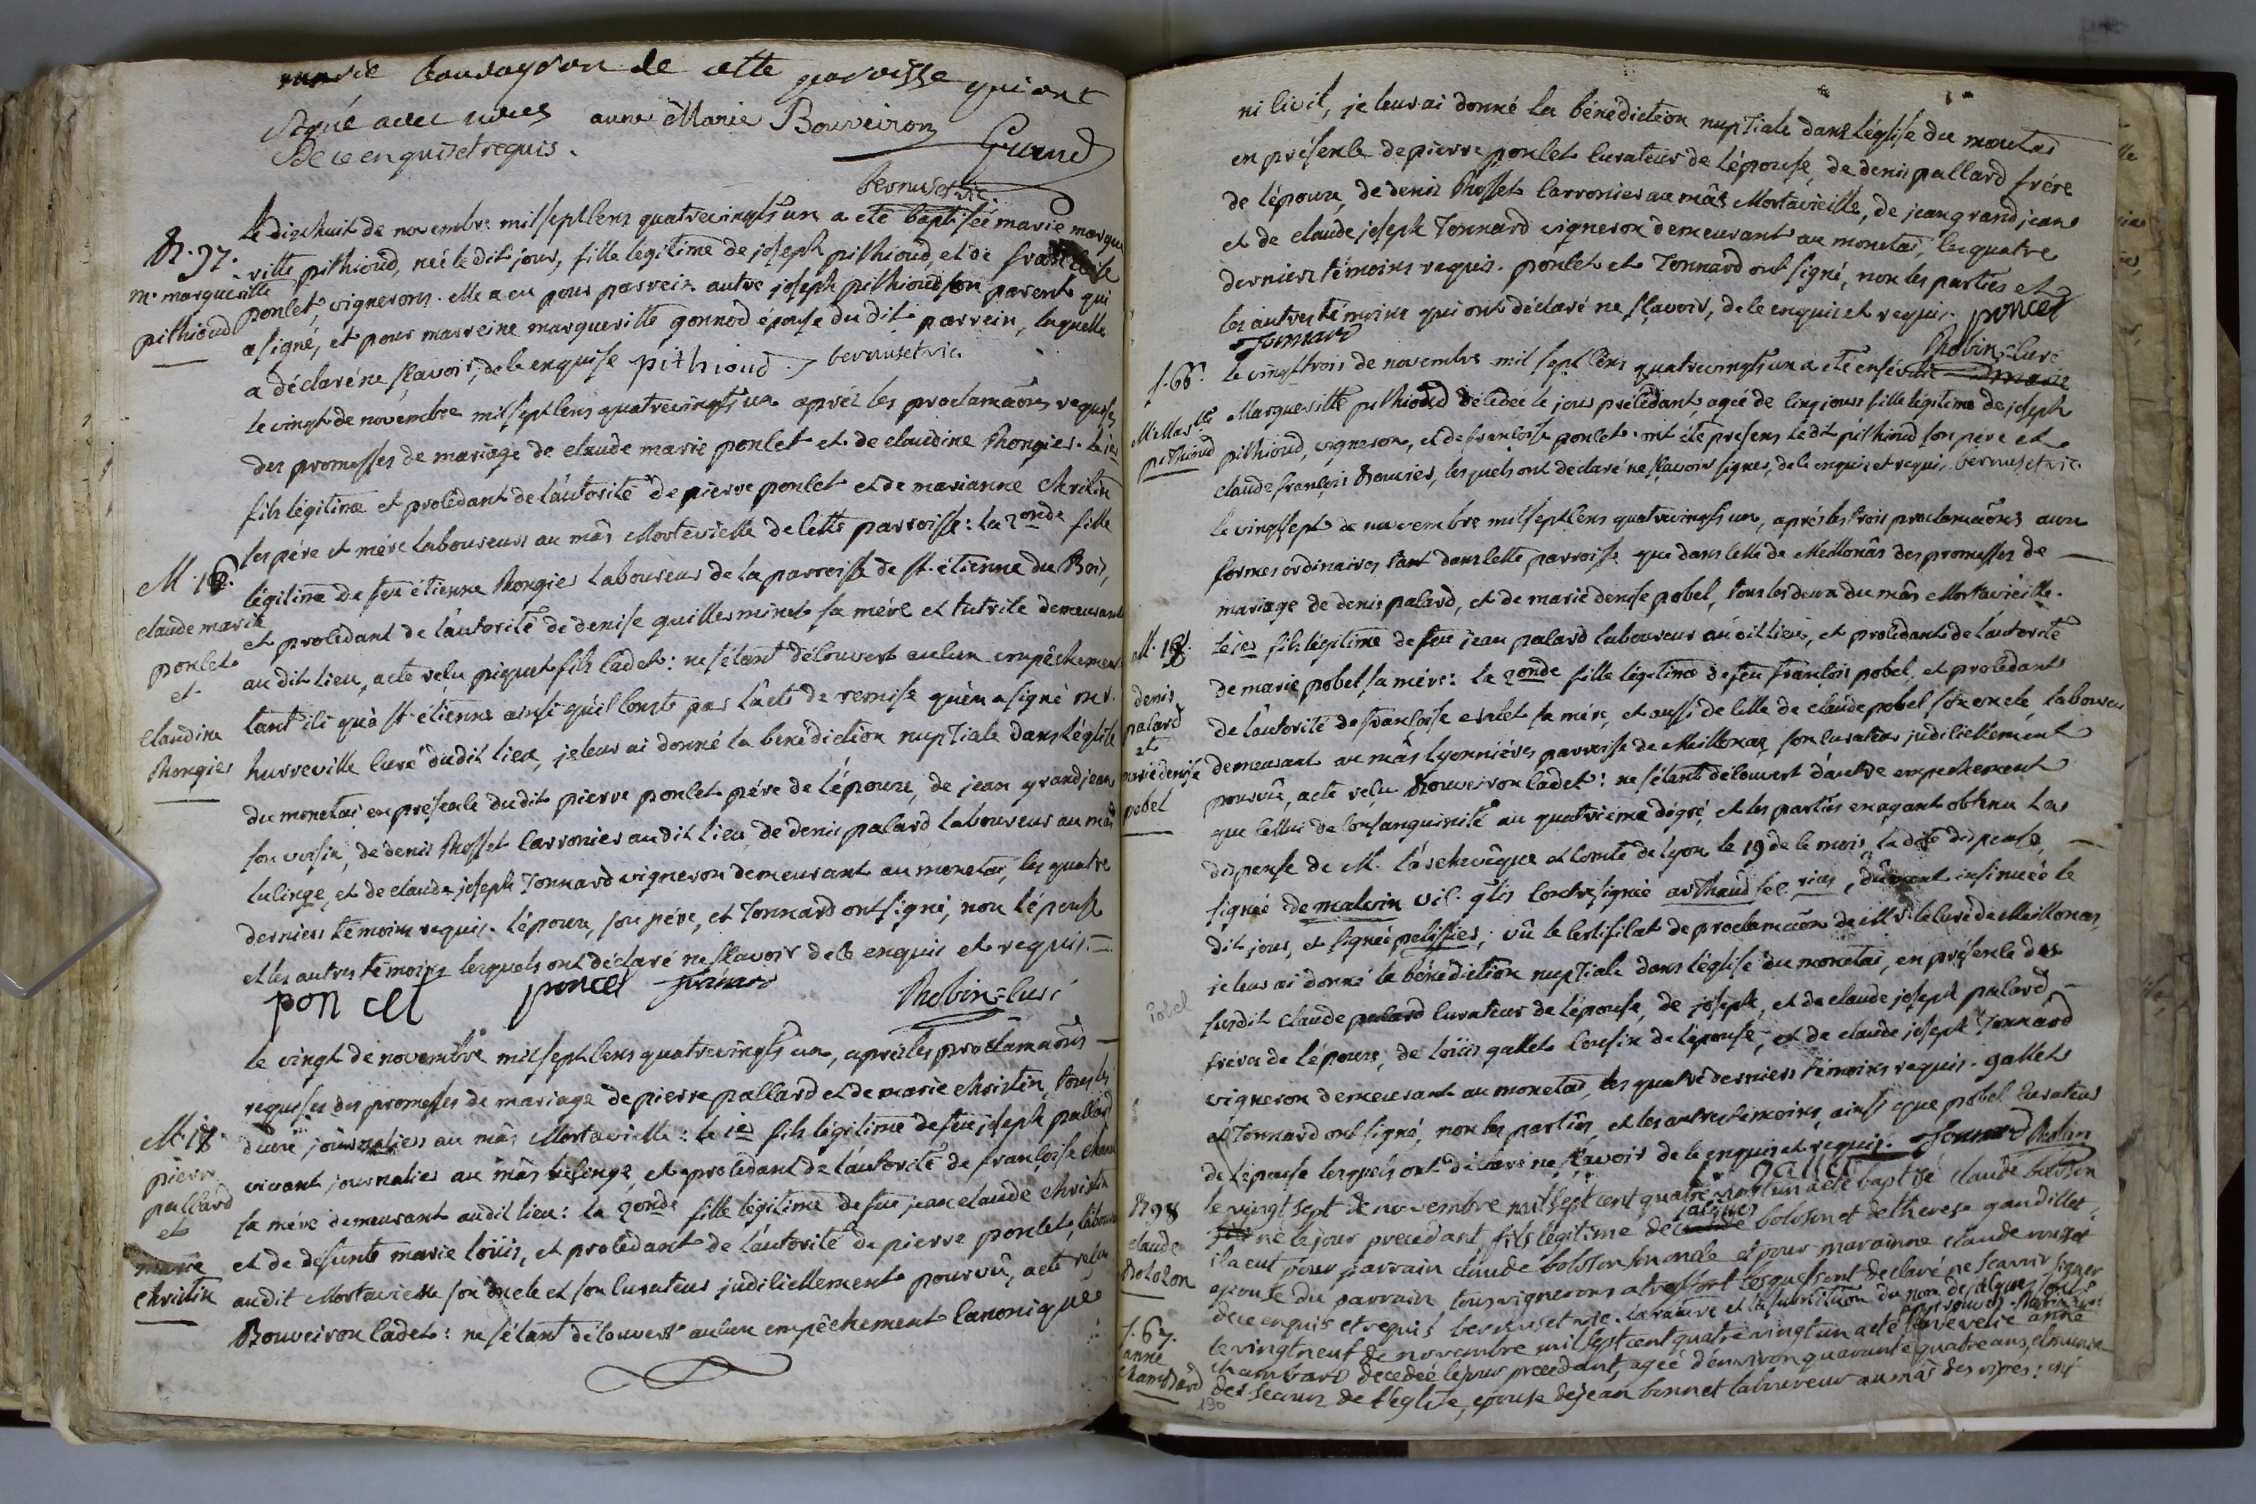 marie de cette paroisse qui ont
signé avec nous anne Marie Bouveiron
De ce enquis et requis. Guand
bernuset vic.
B. 97.
m.e marguerite
pithioud
le dix huit de novembre mil sept cens quatrevingts un a eté baptisée marie margue
ritte pithioud, neé le dit jour, fille legitime de joseph pithioud, et de francoise
poncet, vignerons. elle a eu pour parrein autre joseph pithioud son parent qui
a signé, et pour marreine margueritte gonnod épouse du dit parrein, laquelle
a déclaré ne sçavoir, de ce enquise pithioud bernuset vic.
M. 16.
claude marie
poncet
et
claudine
Rongier
le vingt de novembre mil sept cens quatrevingts un après les proclamaõns requises
des promesses de mariage de claude marie poncet et de claudine Rongier. le 1er
fils légitime et procédant de l'autorité de pierre poncet et de marianne Christin
ses pére et mére laboureurs au mâs Mortevielle de cette parroisse: la 2onde fille
légitime de feu étienne Rongier laboureur de la parroisse de st. étienne du Bois,
et procédant de l'autorité de denise quilleminet sa mére et tutrice demeurant
au dit lieu, acte reçu piquet fils cadet: ne s'étant découvert aucun empêchement
tant ici qu'à st. étienne ainsi qu'il conste par l'acte de remise qu'en a signé mr.
hurreville curé du dit lieu, je leur ai donné la bénédiction nuptiale dans l'église
du monetai en présence du dit pierre poncet pére de l'époux, de jean grandjean
son voisin, de denis Rosset carronier au dit lieu, de denis palard laboureur au mâs
lulinge, et de claude joseph Tonnard vigneron demeurant au monetai, les quatre
derniers témoins requis. l'époux, son pére, et Tonnard ont signé, non l'épouse
et les autres témoins lesquels ont déclaré ne sçavoir de ce enquis et requis.
pon cet poncet Tonnard Robin=curé
M. 17.
pierre
pallard
et
marie
christin
le vingt de novembre mil sept cens quatrevingts un, après les proclamaõns
requises des promesses de mariage de pierre pallard et de marie christin, tous les
deux journaliers au mâs Mortevielle: le 1er fils légitime de feu joseph pallard
vivant journalier au mâs lulinge, et procédant de l'autorité de françoise
sa mére demeurant au dit lieu: la 2onde fille légitime de feu jean claude christin
et de defunte marie loüis, et procédant de l'autorité de pierre poncet, laboureur
au dit Mortevielle son oncle et son curateur judiciellement pourvû, acte reçu
Bouveiron cadet: ne s'étant découvert aucun empêchement canonique
ni civil, je leur ai donné la bénédiction nuptiale dans l'église du monetai
en présence de pierre poncet curateur de l'épouse, de denis pallard frére
de l'époux, de denis Rosset carronier au mâs Mortevieille, de jean grandjean
et de claude joseph Tonnard vigneron demeurant au monetai, les quatre
derniers témoins requis. poncet et Tonnard ont signé, non les parties et
les autres témoins qui ont déclaré ne sçavoir, de ce enquis et requis. poncet
Tonnard Robin=curé
S. 66.
M. Marg.te
pithioud
le vingt trois de novembre mil sept cens quatrevingts un a eté ensévelie marie
Margueritte pithioud décédée le jour précédant, agée de cinq jours fille légitime de joseph
pithioud, vigneron, et de francoise poncet. ont été présens le dit pithioud son pere et
claude françois Bouvier, lesquels ont déclaré ne sçavoir signer, de ce enquis et requis. bernuset vic.
M. 18.
denis
palard
et
marie denise
pobel
le vingt sept de novembre mil sept cens quatrevingts un, aprés les trois proclamaõns aux
formes ordinaires tant dans cette parroisse que dans celle de Meillonâs des promesses de
mariage de denis palard, et de marie denise pobel, tous les deux du mâs Mortevieille.
le 1er fils légitime de feu jean palard laboureur au dit lieu, et procédant de l'autorité
de marie pobel sa mére: la 2onde fille légitime de feu françois pobel, et procédant
de l'autorité de françoise sa mére, et aussi de celle de claude pobel son oncle, laboureur
demeurant au mâs lyonniéres parroisse de Meillonas, son curateur judiciellement
pourvû, acte reçu Bouveiron cadet: ne s'étant découvert d'autre empechement
que celui de consanguinité au quatrième dégré, et les parties en ayant obtenu la
dispense de M. l'archevêque et comte de lyon le 19 de ce mois, la dite dispense,
signée de malvin vic. g.les contresignée arthaud séc.rias, dûment insinuée le
dit jour, et signée pelissier; vû le certificat de proclamaõn de Mr. le curé de Meillonas,
je leur ai donné la bénédiction nuptiale dans l'église du monetai, en présence des
susdit claude palard curateur de l'épouse, de joseph, et de claude joseph palard
pobel
fréres de l'époux, de loüis gallet cousin de l'épouse, et de claude joseph Tonnard
vigneron demeurant au monetai, les quatre derniers témoins requis. gallet
et Tonnard ont signé, non les parties, et les autres témoins, ainsi que pobel curateur
de l'épouse lesquels ont déclaré ne sçavoir de ce enquis et requis. Tonnard Robin
gallet
B. 98
claude
Bolozon
le vingt sept de novembre mil sept cent quatre vingt un a eté baptisé claude boloson
né le jour precedant fils legitime de jacques boloson et de therese gandillet
il a eut pour parrain claude boloson son oncle et pour marainne claude
epouse du parrain tous vignerons a tressort lesquels ont declaré ne scavoir signer
de ce enquis et requis bernuset vic. la rature et la substitution du nom de jacques
S. 67.
anne
Chambard
le vingt neuf de novembre mil sept cent quatre vingt un a eté ensevelie anne
chambard decedeé le jour precedant, ageé d'environ quarante quatre ans, et munie
des secours de l'eglise, epouse de jean bonnet laboureur au mas des vipes: ont
190